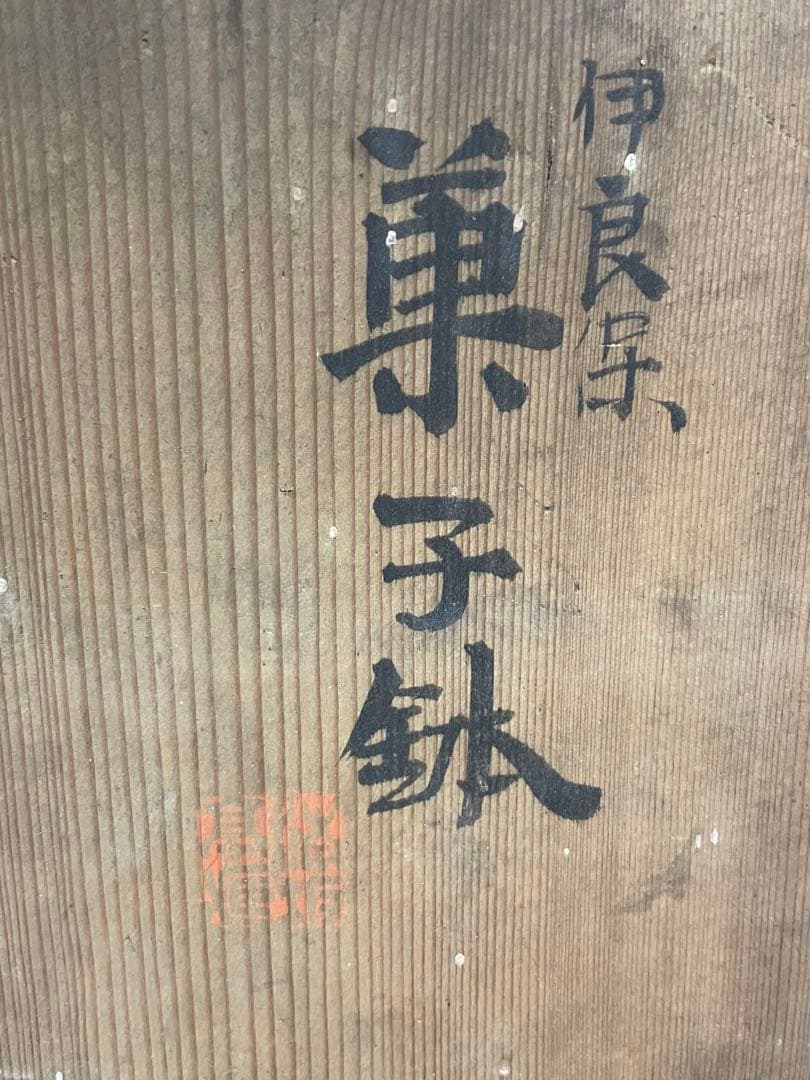 伊良保
菓子鉢